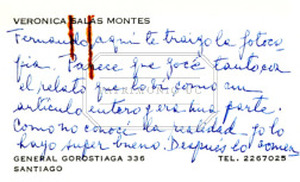 VERONICA SALAS MONTES
Fernando, aquí te traigo la fotoco
pia. Parece que gocé tanto con
el relato que lo di como un
artículo entero y era una parte.
Como no conocí la realidad yo lo
hayo super bueno. Después lo
GENERAL GOROSTIAGA 336
TEL. 2267025
SANTIAGO